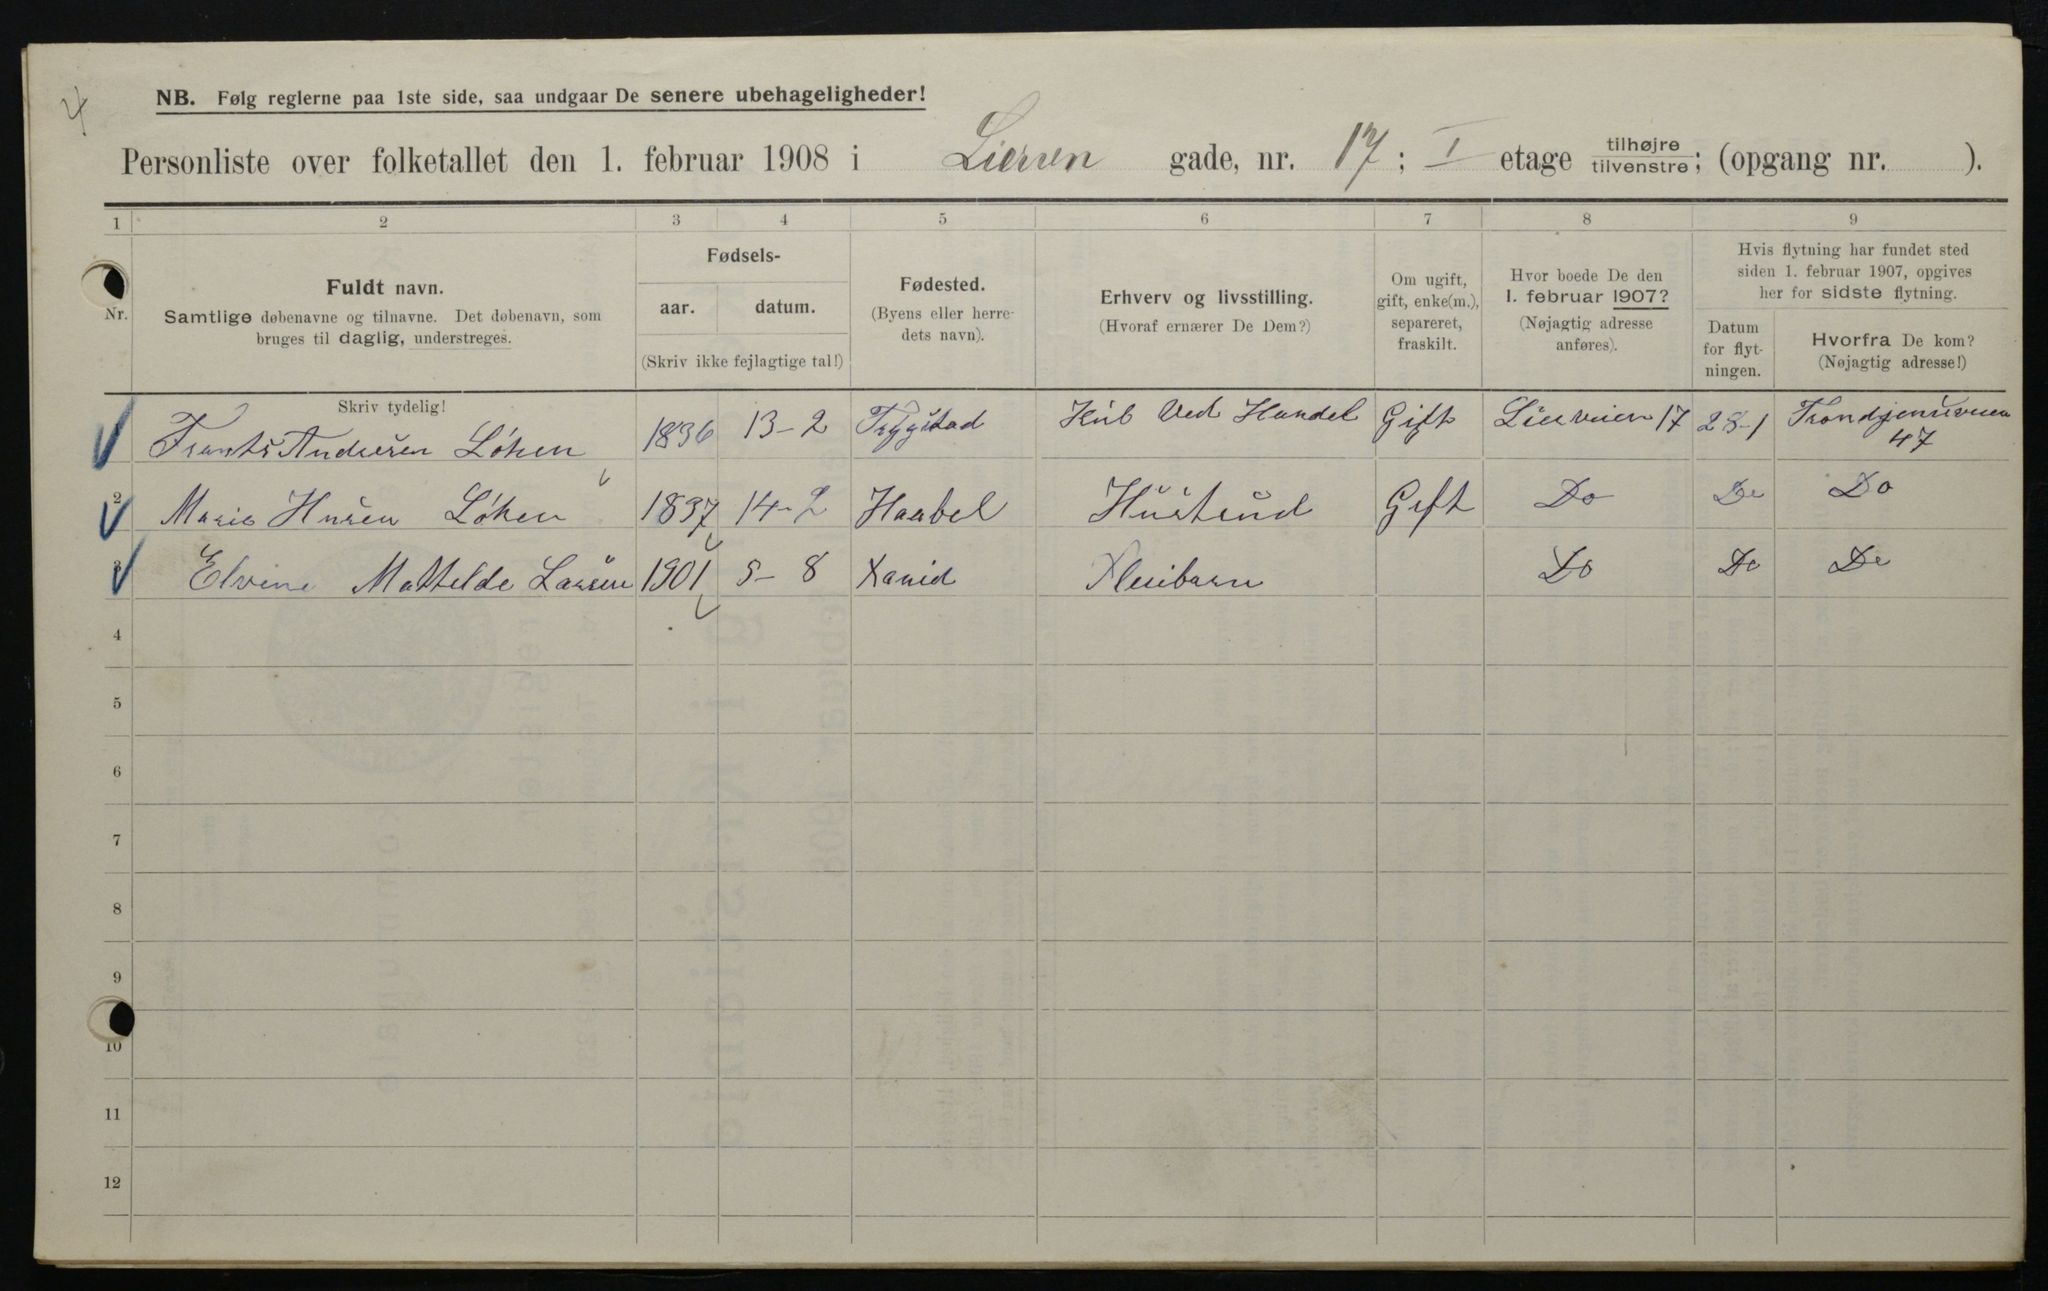 4
NB. Følg reglerne paa 1ste side, saa undgaar De senere ubehageligheder!
Personliste over folketallet den 1. februar 1908 i Liersen gade, nr. 17; I etage tilhøjre tilvenstre; (opgang nr. ).
1 2 3 4 5 6 7 8 9
Nr.
Fuldt navn.
Samtlige døbenavne og tilnavne. Det døbenavn, som
bruges til daglig, understreges.
Fødsels-
aar. datum.
(Skriv ikke fejlagtige tal!)
Fødested.
(Byens eller herre-
dets navn).
Erhverv og livsstilling.
(Hvoraf ernærer De Dem?)
Om ugift,
gift, enke(m.),
separeret,
fraskilt.
Hvor boede De den
1. februar 1907?
(Nøjagtig adresse
anføres).
Hvis flytning har fundet sted
siden 1. februar 1907, opgives
her for sidste flytning.
Datum
for flyt-
ningen.
Hvorfra De kom?
(Nøjagtig adresse!)
Skriv tydelig!
Frants Andresen Løken 1836 13-2 Trygstad Ved Handel Gift Lierveien 17 28-1 Trondjemsveien
47
2 Marie Husen Løken 1837 14-2 Haabel Hustrud Gift Do Do Do
3 Elvine Mathelde Larsen 1901 5-8 Xania Pleibarn Do Do Do
4
5
6
7
8
9
10
11
12